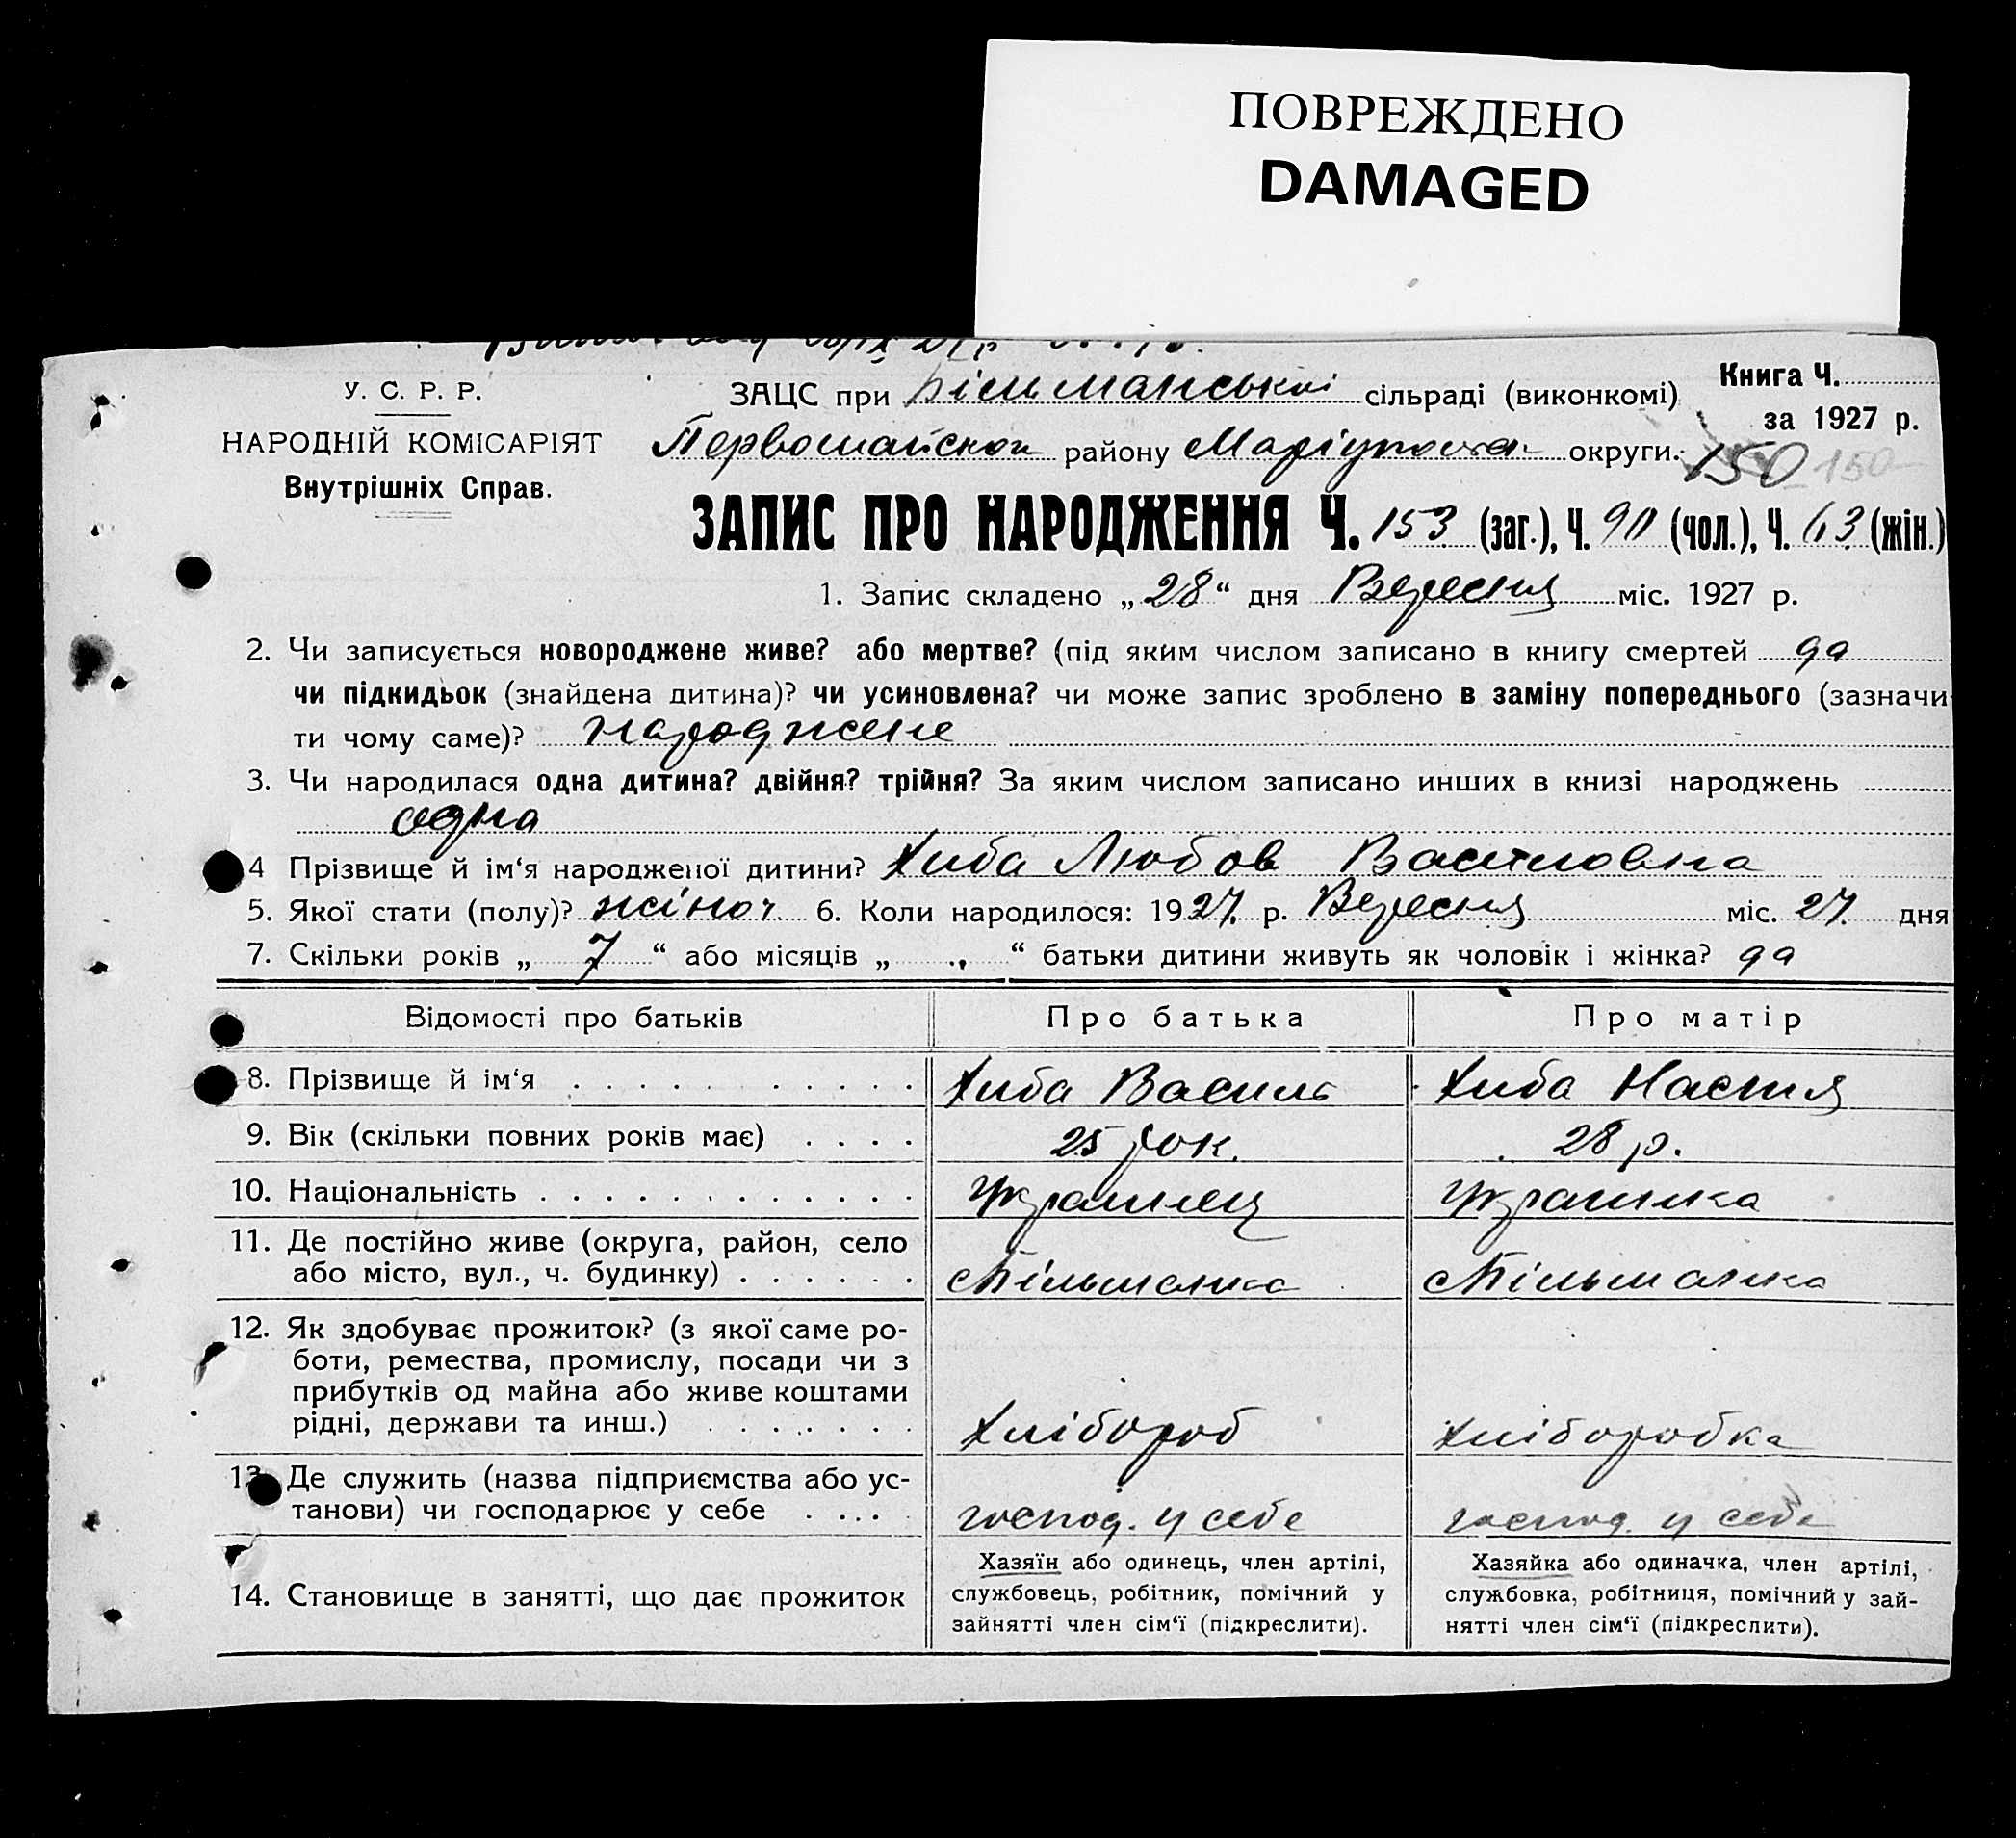 ПОВРЕЖДЕНО
DAMAGED
У. С. Р. Р.
НАРОДНІЙ КОМІСАРІЯТ
Внутрішніх Справ.
ЗАЦС при Більманській сільраді (виконкомі)
Первомайскої району Маріупольс округи.
Книга Ч.
за 1927 р.
150 150
ЗАПИС ПРО НАРОДЖЕННЯ Ч. 153 (заг.), Ч. 90 (чол.), Ч. 63 (жін.)
1. Запис складено „28“ дня Вересня міс. 1927 р.
2. Чи записується новороджене живе? або мертве? (під яким числом записано в книгу смертей да
чи підкидьок (знайдена дитина)? чи усиновлена? чи може запис зроблено в заміну попереднього (зазначи-
ти чому саме)? народжене
3. Чи народилася одна дитина? двійня? трійня? За яким числом записано инших в книзі народжень
одна
4 Прізвище й ім‘я народженої дитини? Хиба Любов Василовна
5. Якої стати (полу)? жіноч. 6. Коли народилося: 1927. р. Вересня міс. 27. дня
7. Скільки років „ 7 “ або місяців „ “ батьки дитини живуть як чоловік і жінка? да
Відомості про батьків Про батька Про матір
8. Прізвище й ім‘я Хиба Василь Хиба Настя
9. Вік (скільки повних років має) 25 рок. 28 р.
10. Національність Украинец Украинка
11. Де постійно живе (округа, район, село
або місто, вул., ч. будинку) сБільманка сБільманка
12. Як здобуває прожиток? (з якої саме ро-
боти, ремества, промислу, посади чи з
прибутків од майна або живе коштами
рідні, держави та инш.) Хлібороб Хліборобка
13. Де служить (назва підприємства або ус-
танови) чи господарює у себе господ. у себе господ. у себе
14. Становище в занятті, що дає прожиток
Хазяїн або одинець, член артілі,
службовець, робітник, помічний у
зайнятті член сім‘ї (підкреслити).
Хазяйка або одиначка, член артілі,
службовка, робітниця, помічний у зай-
нятті член сім‘ї (підкреслити).